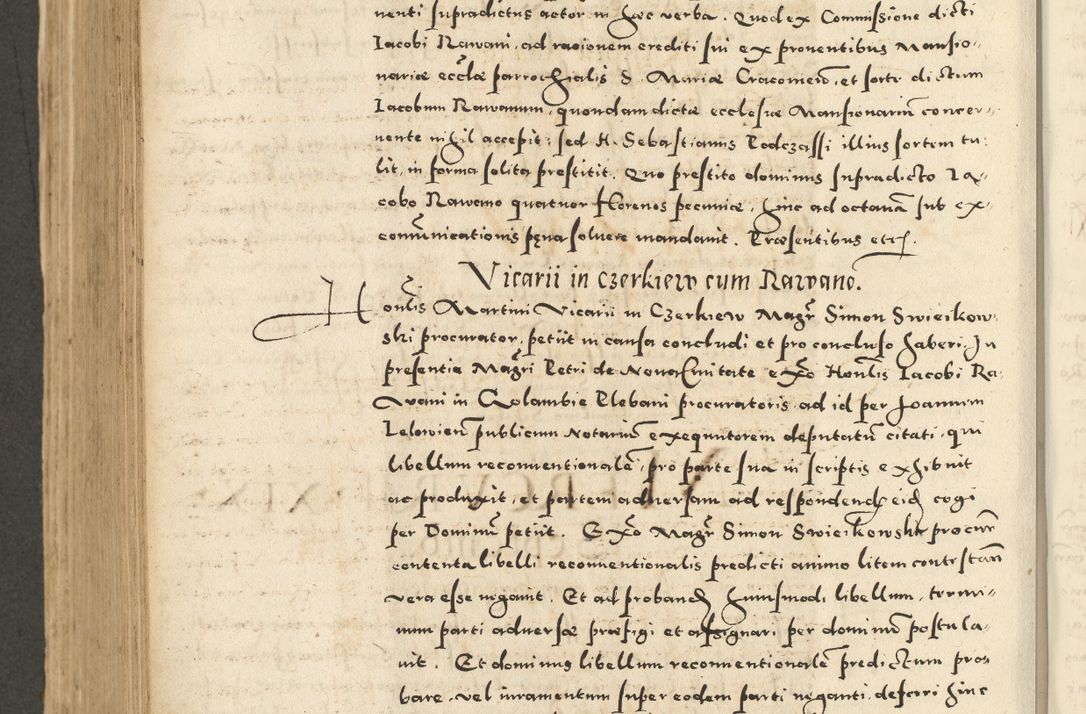 nenti supradictus actor in haec verba. Quod ex Commissione dicti
Iacobi Rawani, ad racionem crediti sui ex proventibus Mansio-
nariae eccłae parrochialis S. Mariae Cracovien̄, et sorte dictum
Iacobum Rawanum, quondam dictae ecclesiae Mansionariū concer-
nente nihil accepit; sed H. Sebastianus Podczassi illius sortem tu-
lit, in forma solita prestitit. Quo prestito dominus supradicto Ia-
cobo Rawano quatuor florenos pecuniae, hinc ad octavā sub ex-
comūnicationis pęna solvere mandavit. Praesentibus etc.
Vicarii in Czerkiew cum Rawano.
Honlis Martini Vicarii in Czerkiew Magr Simon Swieikow-
ski procurator, petiit in causa concludi et pro concluso haberi. In
presentia Magri Petri de Nova Civitate ex.o Honlis Iacobi Ra-
wani in Golambie Plebani procuratoris, ad id per Joannem
Lelowien̄ publicum Notariū exequutorem deputatū citati, qui
libellum reconventionalē, pro parte sua in scriptis exhibuit
ac produxit, et partem adversam ad respondend eid cogi
per Dominū petiit. Ex.o Magr Simon Swieikowski procur
contenta libelli reconventionalis predicti animo litem contestan
vera esse negavit. Et ad proband huiusmodi libellum, termi-
num parti adversae praefigi et assignari per dominū postula-
vit. Et dominus libellum reconventionalē predictum pro-
bare, vel iuramentum super eodem parti neganti deferri hinc